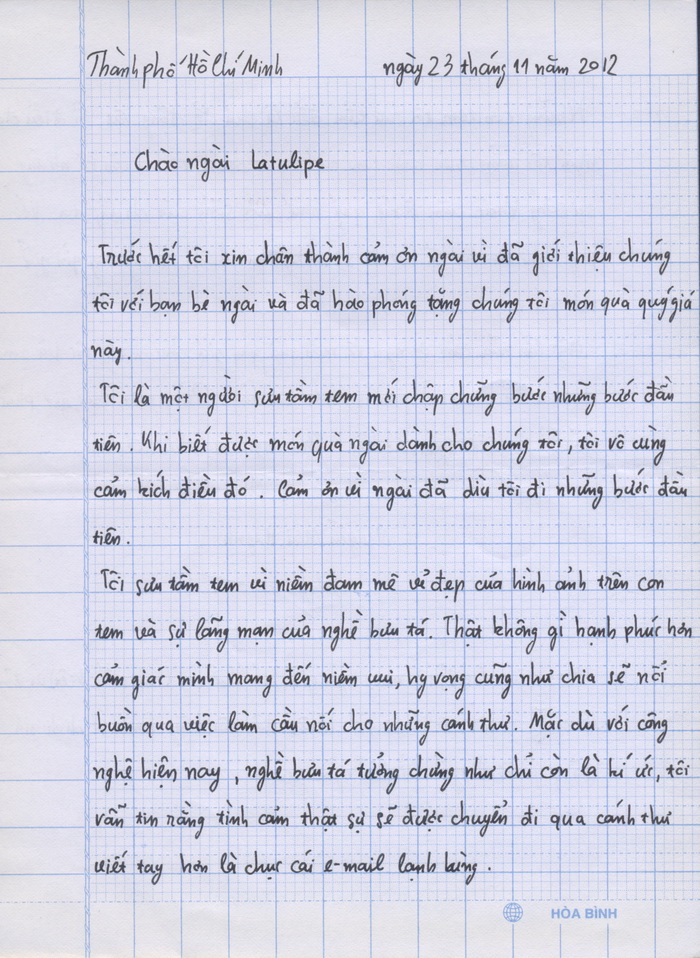 Thành phố Hồ Chí Minh ngày 23 tháng 11 năm 2012
Chào ngài Latulipe
Trước hết tôi xin chân thành cảm ơn ngài vì đã giới thiệu chúng
tôi với bạn bè ngài và đã hào phóng tặng chúng tôi món quà quý giá
này.
Tôi là một người sưu tầm tem mới chập chững bước những bước đầu
tiên. Khi biết được món quà ngài dành cho chúng tôi, tôi vô cùng
cảm kích điều đó. Cảm ơn vì ngài đã dìu tôi đi những bước đầu
tiên.
Tôi sưu tầm tem vì niềm đam mê vẻ đẹp của hình ảnh trên con
tem và sự lãng mạn của nghề bưu tá. Thật không gì hạnh phúc hơn
cảm giác mình mang đến niềm vui, hy vọng cũng như chia sẽ nỗi
buồn qua việc làm cầu nối cho những cánh thư. Mặc dù với công
nghệ hiện nay, nghề bưu tá tưởng chừng như chỉ còn là kí ức, tôi
vẫn tin rằng tình cảm thật sự sẽ được chuyển đi qua cánh thư
viết tay hơn là chục cái e-mail lạnh lùng.
HÒA BÌNH